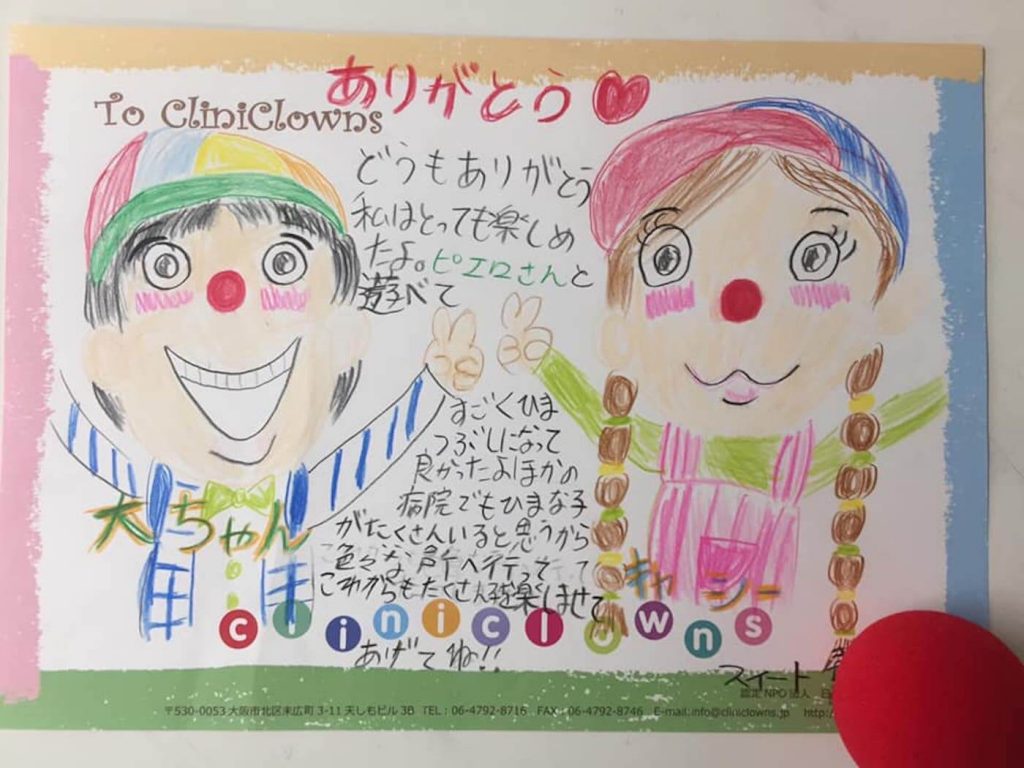 ありがとう
To CliniClowns
どうもありがとう
私はとっても楽しめ
たよ。ピエロさんと
遊べて
すごくひま
つぶしになって
良かったよほかの
病院でもひまな子
がたくさんいると思うから
色々な所へ行って
これからもたくさん楽しませて
あげてね!!
大ちゃん
キャシー
cliniclowns
スイート
認定NPO法人 日
〒530-0053 大阪市北区末広町 3-11 天しもビル 3B TEL:06-4792-8716 FAX:06-4792-8746 E-mail:info@cliniclowns.jp http:/